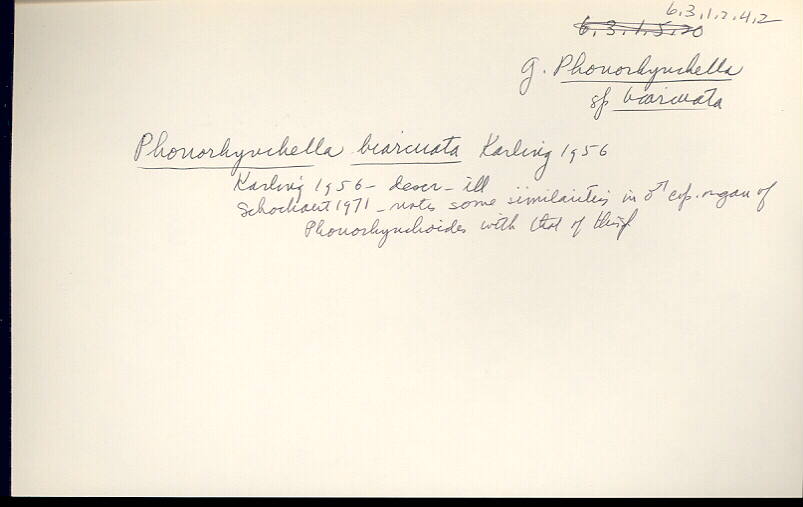 6.3.1.2.4.2
6.3.1.5.20
g. Phonorhynchella
sp biarcuata
Phonorhynchella biarcuata Karling 1956
Karling 1956 - descr - ill
Schockaert 1971 - notes some similarities in ♂ cop. organ of
Phonorhynchoides with that of this